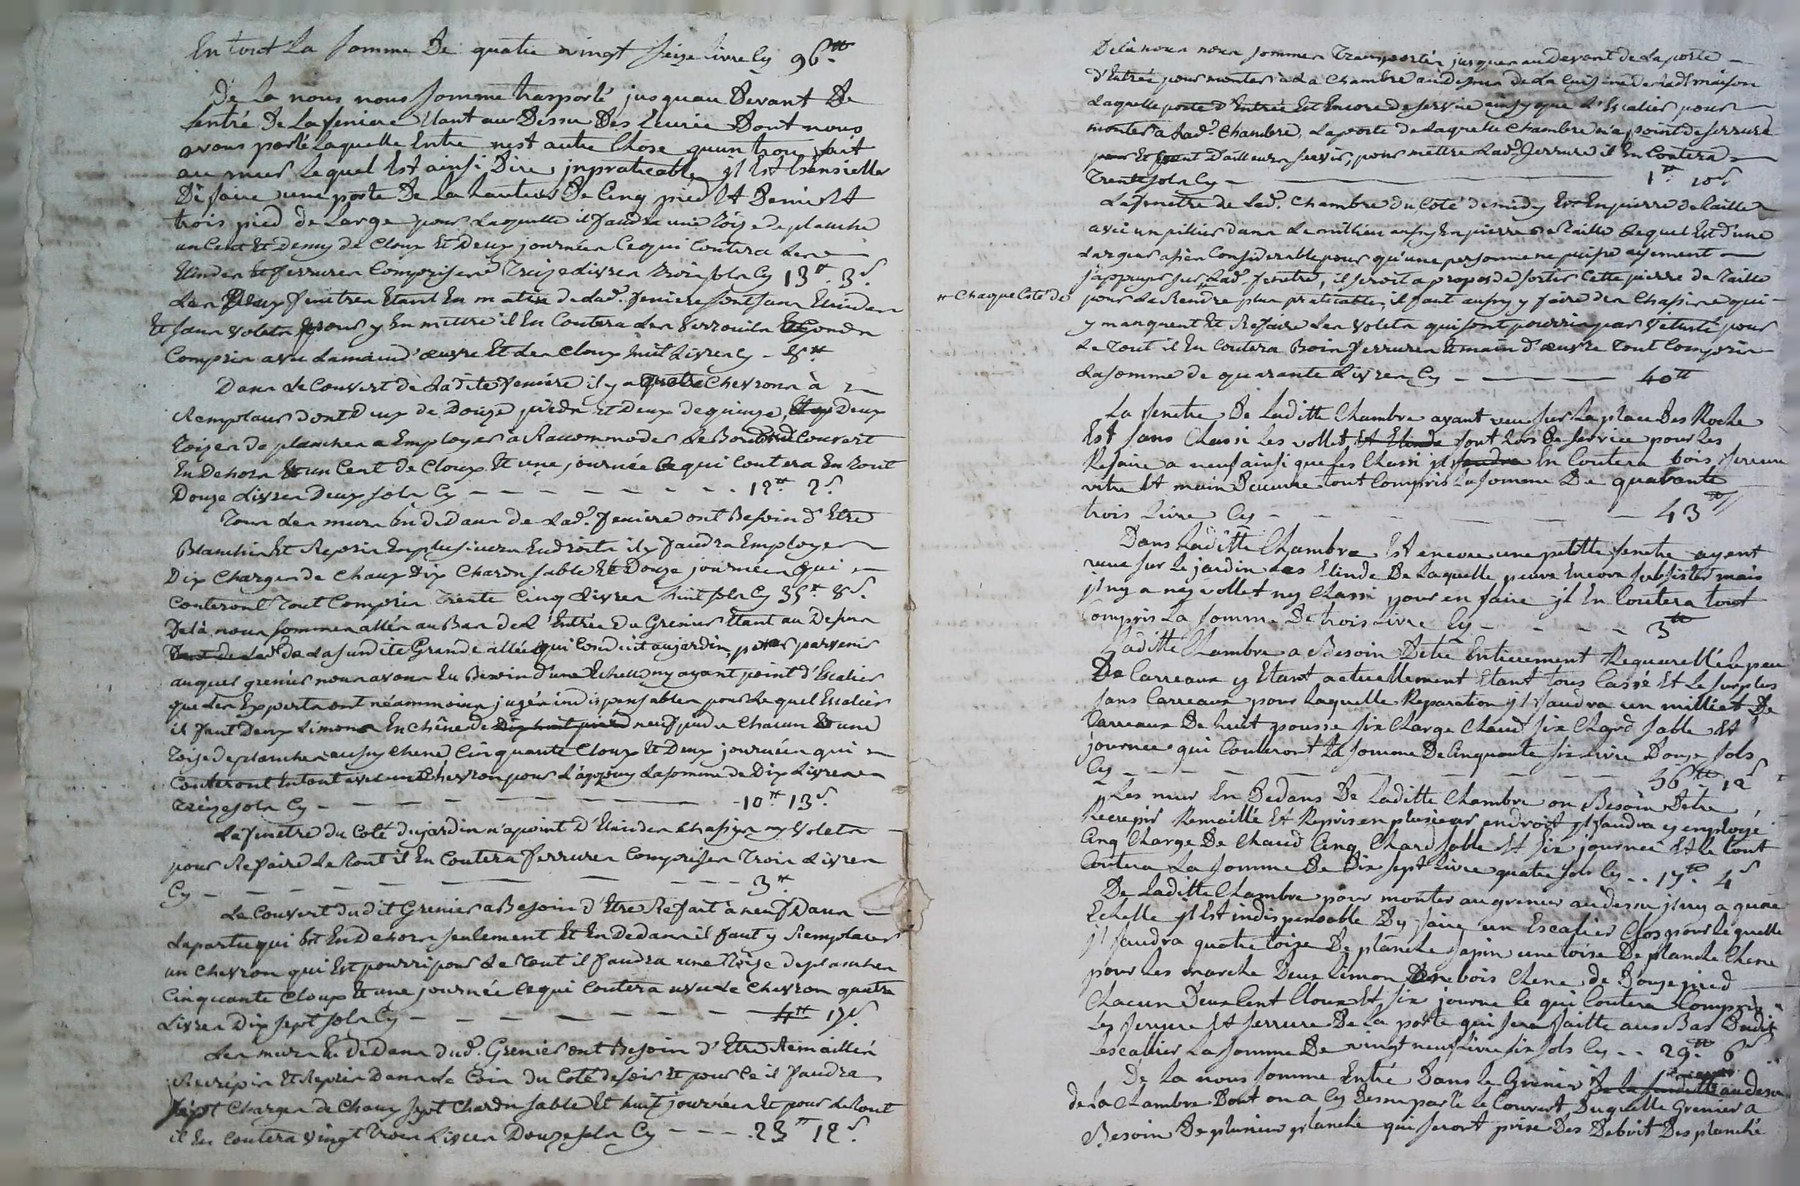 En tout La somme De quatre vingt seize livre Cy 96.tt
De la nous nous somme trasporté jusquau Devant De
lentré De La feniere étant au Dessu Des Ecurie Dont nous
avons parlé Laquelle Entre nest autre Chose quun trou fait
au mur Lequel Est ainsi Dire inpraticable il Est Essensielle
De faire une porte De La hauteur De Cinq pied Et Demi Et
trois pied de Large pour Laquelle il faudra une toise de planche
un Cent Et Demy de Cloux Et Deux journées Ce qui Coutera Les
Elindes Et ferrures Comprises Treize Livres trois sols Cy 13.tt 3.s
Les Deux fenetres Etant En matin de Lad.e feniere sont sans Elindes
Et sans volets pour y En mettre il En Coutera Les verrouils Et gonds
Compris avec La main d'œuvre Et Les Cloux huit Livres Cy - 8.tt
Dans Le Couvert de Ladite feniere il y a quatre Chevrons à
Remplacer dont Deux de Douze pieds Et Deux de quinze, Deux
Toises de planches a Employer à Raccommoder Le Bord Couvert
En Dehors Et un Cent de Cloux Et une journée Ce qui Coutera En tout
Douze Livres Deux sols Cy - - - - - - - - 12.tt 2.s
Tous Les murs En Dedans de Lad.e feniere ont Besoin d'Etre
Blanchis Et Repris En plusieurs Endroits il y faudra Employer
Dix Charges de Chaux Dix Chards sable Et Douze journées qui
Couteront Tout Compris Trente Cinq Livres huit sols Cy 35.tt 8.s
De là nous sommes allés au Bas de L'Entrée du Grenier Etant au Dessus
de La susdite Grande allée qui Conduit au jardin, pour parvenir
auquel grenier nous avons Eu Besoin d'une Echelle ny ayant point d'Escalier
que Les Experts ont néammoins jugés indispensables pour Lequel Escalier
il faut Deux Limons En chêne de Dix huit pieds neuf pieds Chacun Et une
Toise de planches aussy chene, Cinquante Cloux Et Deux journées qui
Couteront En tout avec un Chevron pour L'appuy La somme de Dix Livres
Treize sols Cy - - - - - - - - 10.tt 13.s
La fenetre du Coté du jardin n'a point d'Elindes Chassis ny Volets
pour Refaire Le tout il En Coutera ferrures Comprises Trois Livres
Cy - - - - - - - - 3.tt
Le Couvert dudit Grenier a Besoin d'Etre Refait à neuf Dans
La partie qui Est En Dehors seulement Et En Dedans il faut y Remplacer
un Chevron qui Est pourri pour Le tout il faudra une Toise de planches
Cinquante Cloux Et une journée Ce qui Coutera avec Le Chevron quatre
Livres Dix sept sols Cy - - - - - - - 4.tt 17.s
Les murs En Dedans dud. Grenier ont Besoin d'Etre Remaillés
Recrépis Et Repris Dans Le Coin du Coté de soir Et pour Ce il faudra
sept Charges de Chaux sept Chards sable Et huit journées Et pour Le tout
il En Coutera vingt trois Livres Douze sols Cy - - - 23.tt 12.s
De là nous nous sommes Transportés jusques au Devant de La porte
d'Entrée pour monter à La Chambre au Dessus de La Cuisine de Lad.e maison
Laquelle porte d'Entrée Est Encore de service ainsy que L'Escalier pour
monter à Lad.e Chambre, La porte de Laquelle Chambre n'a point de serrure
Et peut D'ailleurs servir, pour mettre Lad.e serrure il En Coutera
Trente sols Cy - 1.tt 10.s
La fenetre de Lad.e Chambre du Coté de midy Est En pierre de taille
avec un pillier dans Le milieu aussy En pierre de Taille Lequel Est d'une
Largeur assés Considerable pour qu'une personne ne puisse aysement
s'appuyer sur Lad.e fenetre, il seroit a propos de sortir Cette pierre de Taille
# Chaque Coté de
pour La Rendre plus praticable, il faut aussy y faire des Chassis # qui
y manquent Et Refaire Les Volets qui sont pourris par Vétusté pour
Le tout il En Coutera Bois ferrures Et main d'œuvre Tout Compris
La somme de quarante Livres Cy - - - - - 40.tt
La fenetre De Laditte Chambre ayant veue sur La place Des Roche
Est sans Chassi Les vollet Et Elinde sont hors De service pour Les
Refaire a neuf ainsi que ses Chassi il faudra En Coutera bois ferrure
vitre Et main Deuvre tout Compris La somme De quarente
trois Livre Cy - - - - - - 43.tt
Dans Laditte Chambre Est encore une petitte fenetre ayent
veue sur Le jardin Les Elinde De Laquelle peuve Encore subsister mais
il ny a ny vollet ny Chassi pour en faire il En Coutera tout
Compris La somme De trois Livre Cy - - - - 3.tt
Laditte Chambre a Besoin Detre Entierement Requarellé le peu
De Carreaux y Etant actuellement Etant tous Cassé Et Le surplus
sans Carreaux pour Laquelle Reparation il faudra un millier De
Carreaux De huit pousse six Charge Chaud six Chard sable Et
journee qui Couteront La somme De Cinquante six Livre Douze sols
Cy - - - - - - - 56.tt 12.s
Les mur En Dedans De Laditte Chambre on Besoin Detre
Recrepir Remaillé Et Repris en plusieur endroit il faudra y employé
Cinq Charge De Chaud Cinq Chard sable Et six journee Et Le tout
Coutera La somme De Dix sept Livre quatre sols Cy - - 17.tt 4.s
De Laditte Chambre pour monter au grenier au desu il ny a quae
Echelle il Est indispensable Dy faire un Escalier Clos pour Lequelle
il faudra quatre toise De planche sapin une toise De planche Chene
pour Les marche Deux Limon bois Chene de Douze pied
Chacun Deux Cent Cloux Et six journe Ce qui Coutera Compris
Les ferrure Et serrure De La porte qui sera faitte aux Bas Dudit
Lescallier La somme De vingt neuf Livre six sols Cy - - 29.tt 6.s
De La nous somme Entré Dans Le Grenier De La susditte au desus
de La Chambre Dont on a Cy Desu parlé Le Couvert Duquelle Grenier a
Besoin De plusieur planche qui seront prise Des Deboit Des planché